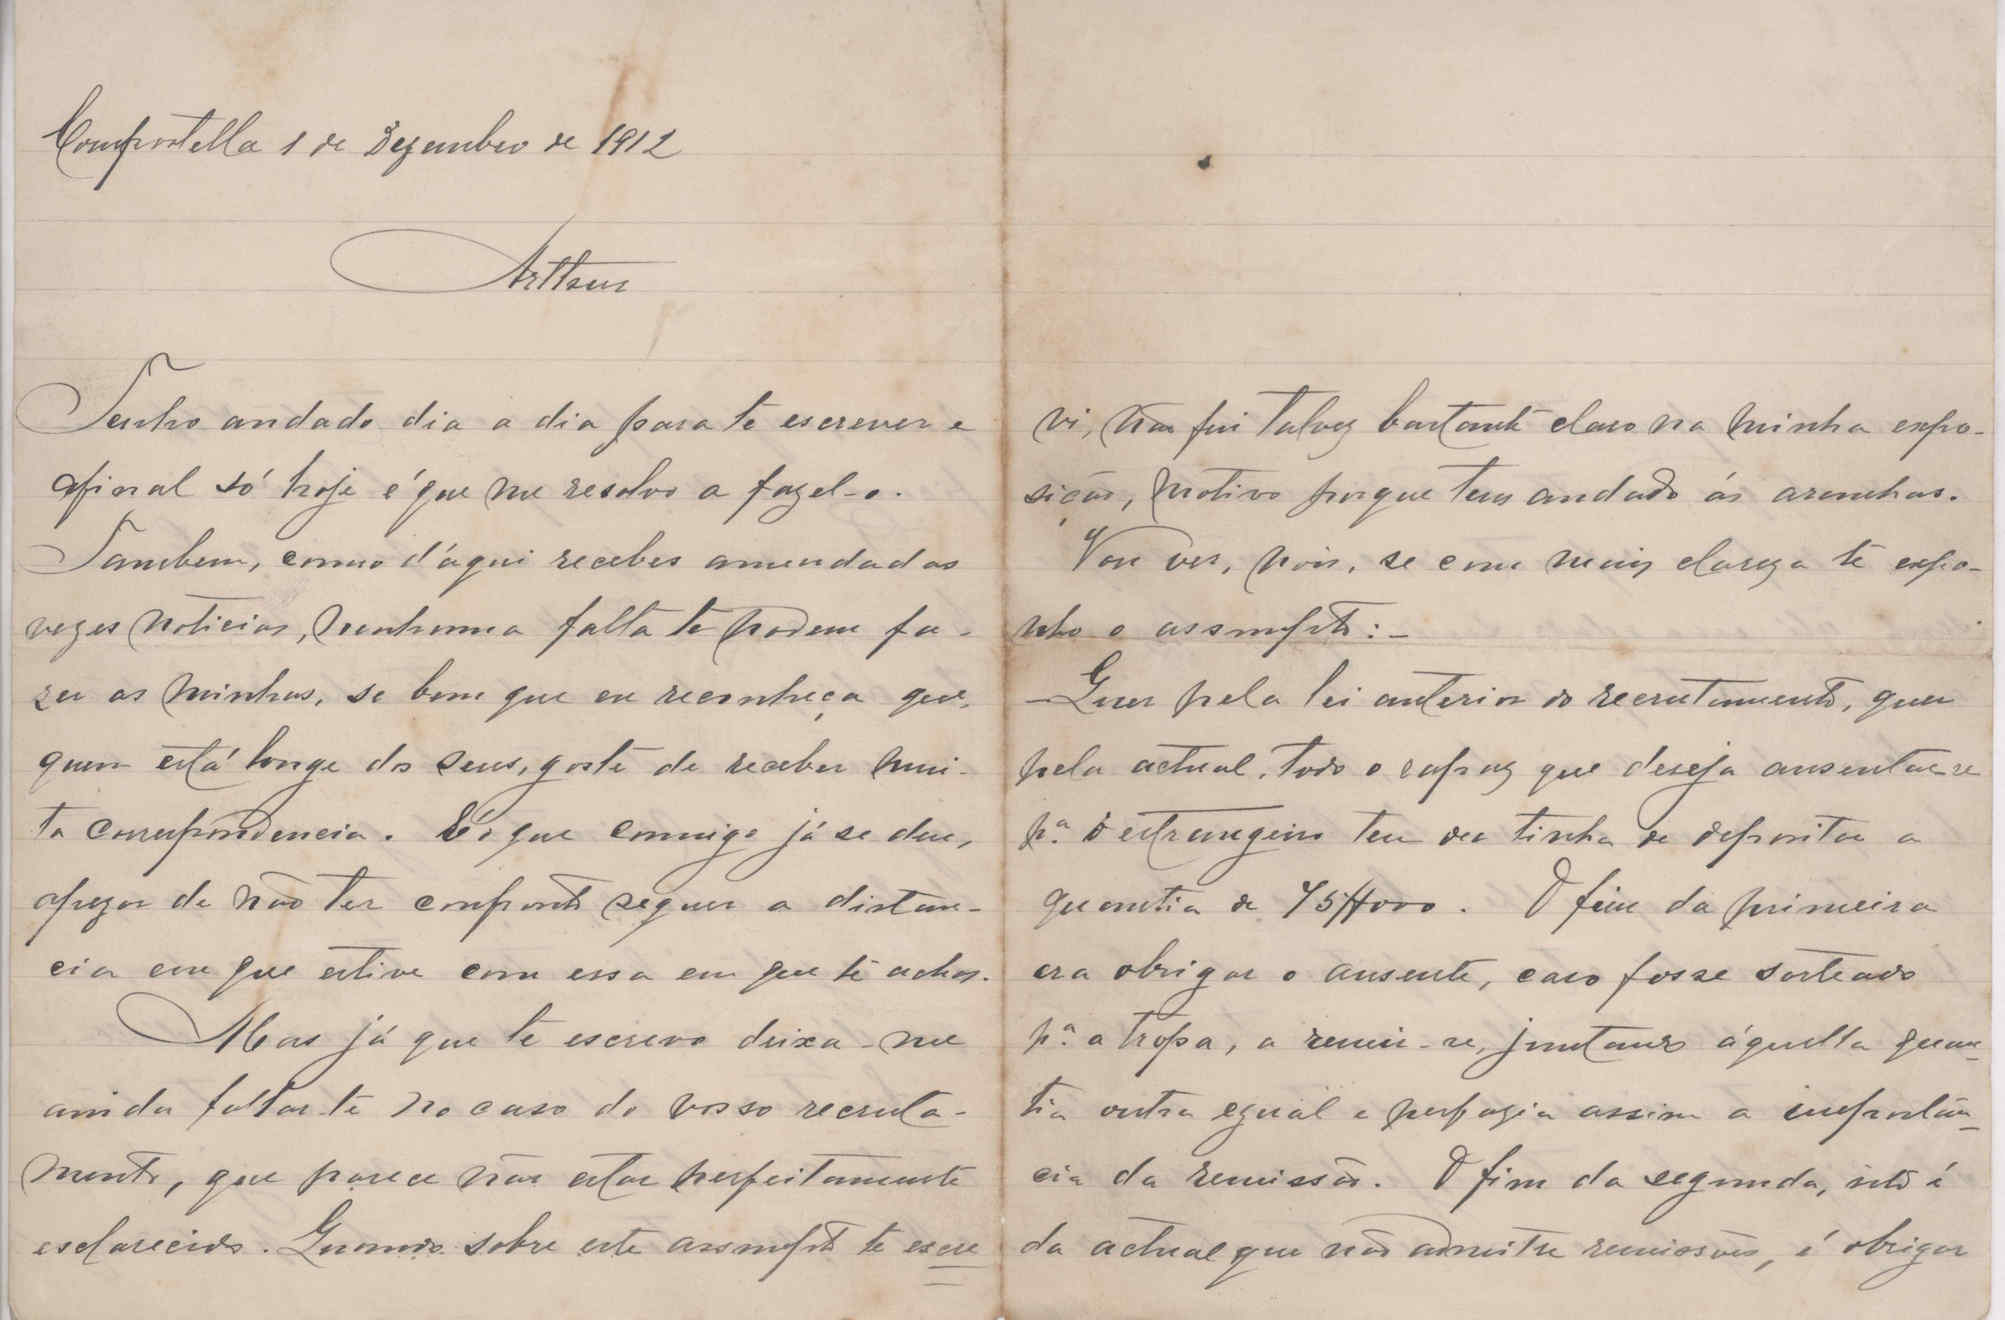 Compostella 1 de Dezembro de 1912
Arthur
Tenho andado dia a dia para te escrever e
afinal só hoje é que me resolvo a fazel-o.
Tambem, como d'aqui recebes amendadas
vezes noticias, nenhuma falta te podem fa-
zer as minhas, se bem que eu reconheça que,
quem está longe dos seus, goste de receber mui-
ta correspondencia. É o que commigo já se deu,
apezar de não ter confronto sequer a distan-
cia em que estive com essa em que te achas.
Mas já que te escrevo deixa-me
ainda fallar-te no caso do vosso recruta-
mento, que parece não estar perfeitamente
esclarecido. Quando sobre este assumpto te escre
vi, não fui talvez bastante claro na minha expo-
sição, motivo porque tens andado ás aranhas.
Vou ver, pois, se com mais clareza te expo-
nho o assumpto:-
-Quer pela lei anterior do recrutamento, quer
pela actual, todo o rapaz que deseja ausentar-se
p.ª o estrangeiro tem ou tinha de depositar a
quantia de 75$000. O fim da primeira
era obrigar o ausente, caso fosse sorteado
p.ª a tropa, a remir-se, juntando áquella quan-
tia outra egual e perfazia assim a importan-
cia da remissão. O fim da segunda, isto é
da actual que não admitte remissões, é obrigar